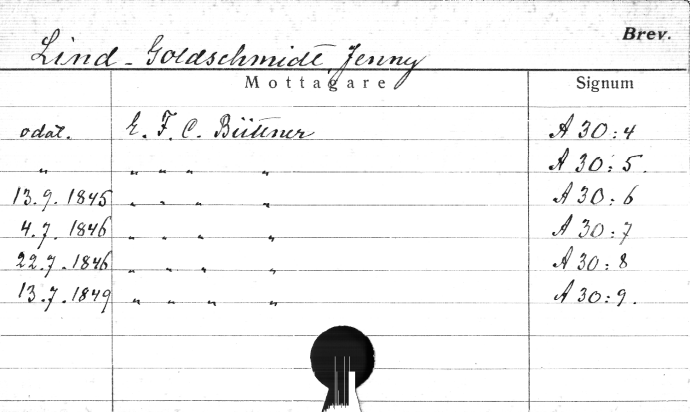 Brev.
Lind-Goldschmidt, Jenny
Mottagare Signum
odat. E. F. C. Büttner A 30:4
" " " " " A 30:5.
13.9.1845 " " " " A 30:6
4.7.1846 " " " " A 30:7
22.7.1846 " " " " A 30:8
13.7.1849 " " " " A 30:9.